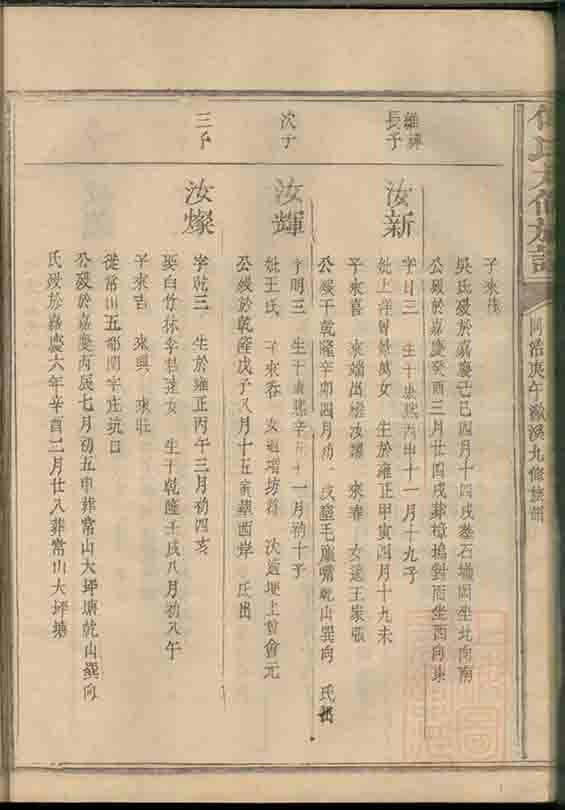 同治庚午激溪九修族譜
子來
吳氏歿於嘉慶己巳四月十四戌葬石塘圆坐北向南
公歿於嘉慶癸酉三月廿四戌葬樟塢對面坐西向東
維
長子
汝新
字日三 生于康熙丙申十一月十九子
娶上洋曾 女 生於雍正甲寅四月十九未
子來喜 來瑞出繼汝耀 來春 女適王家張
公歿于乾隆辛卯四月初 戌葬毛屋嘴乾山巽向 氏出
次子
汝輝
字明三 生于康熙辛丑十一月初十子
娶王氏 子來春 女適增坊 次適埂上曾會元
公歿於乾隆戊子八月十五寅葬西岸 氏出
三子
汝燦
字乾三 生於雍正丙午三月初四亥
娶白竹林李君達女 生于乾隆壬戌八月初八午
子來吉 來興 來旺
從常山五都開字庄坑口
公歿於嘉慶丙辰七月初五申葬常山大坪塘乾山巽向
氏歿於嘉慶六年辛酉二月廿八葬常山大坪塘